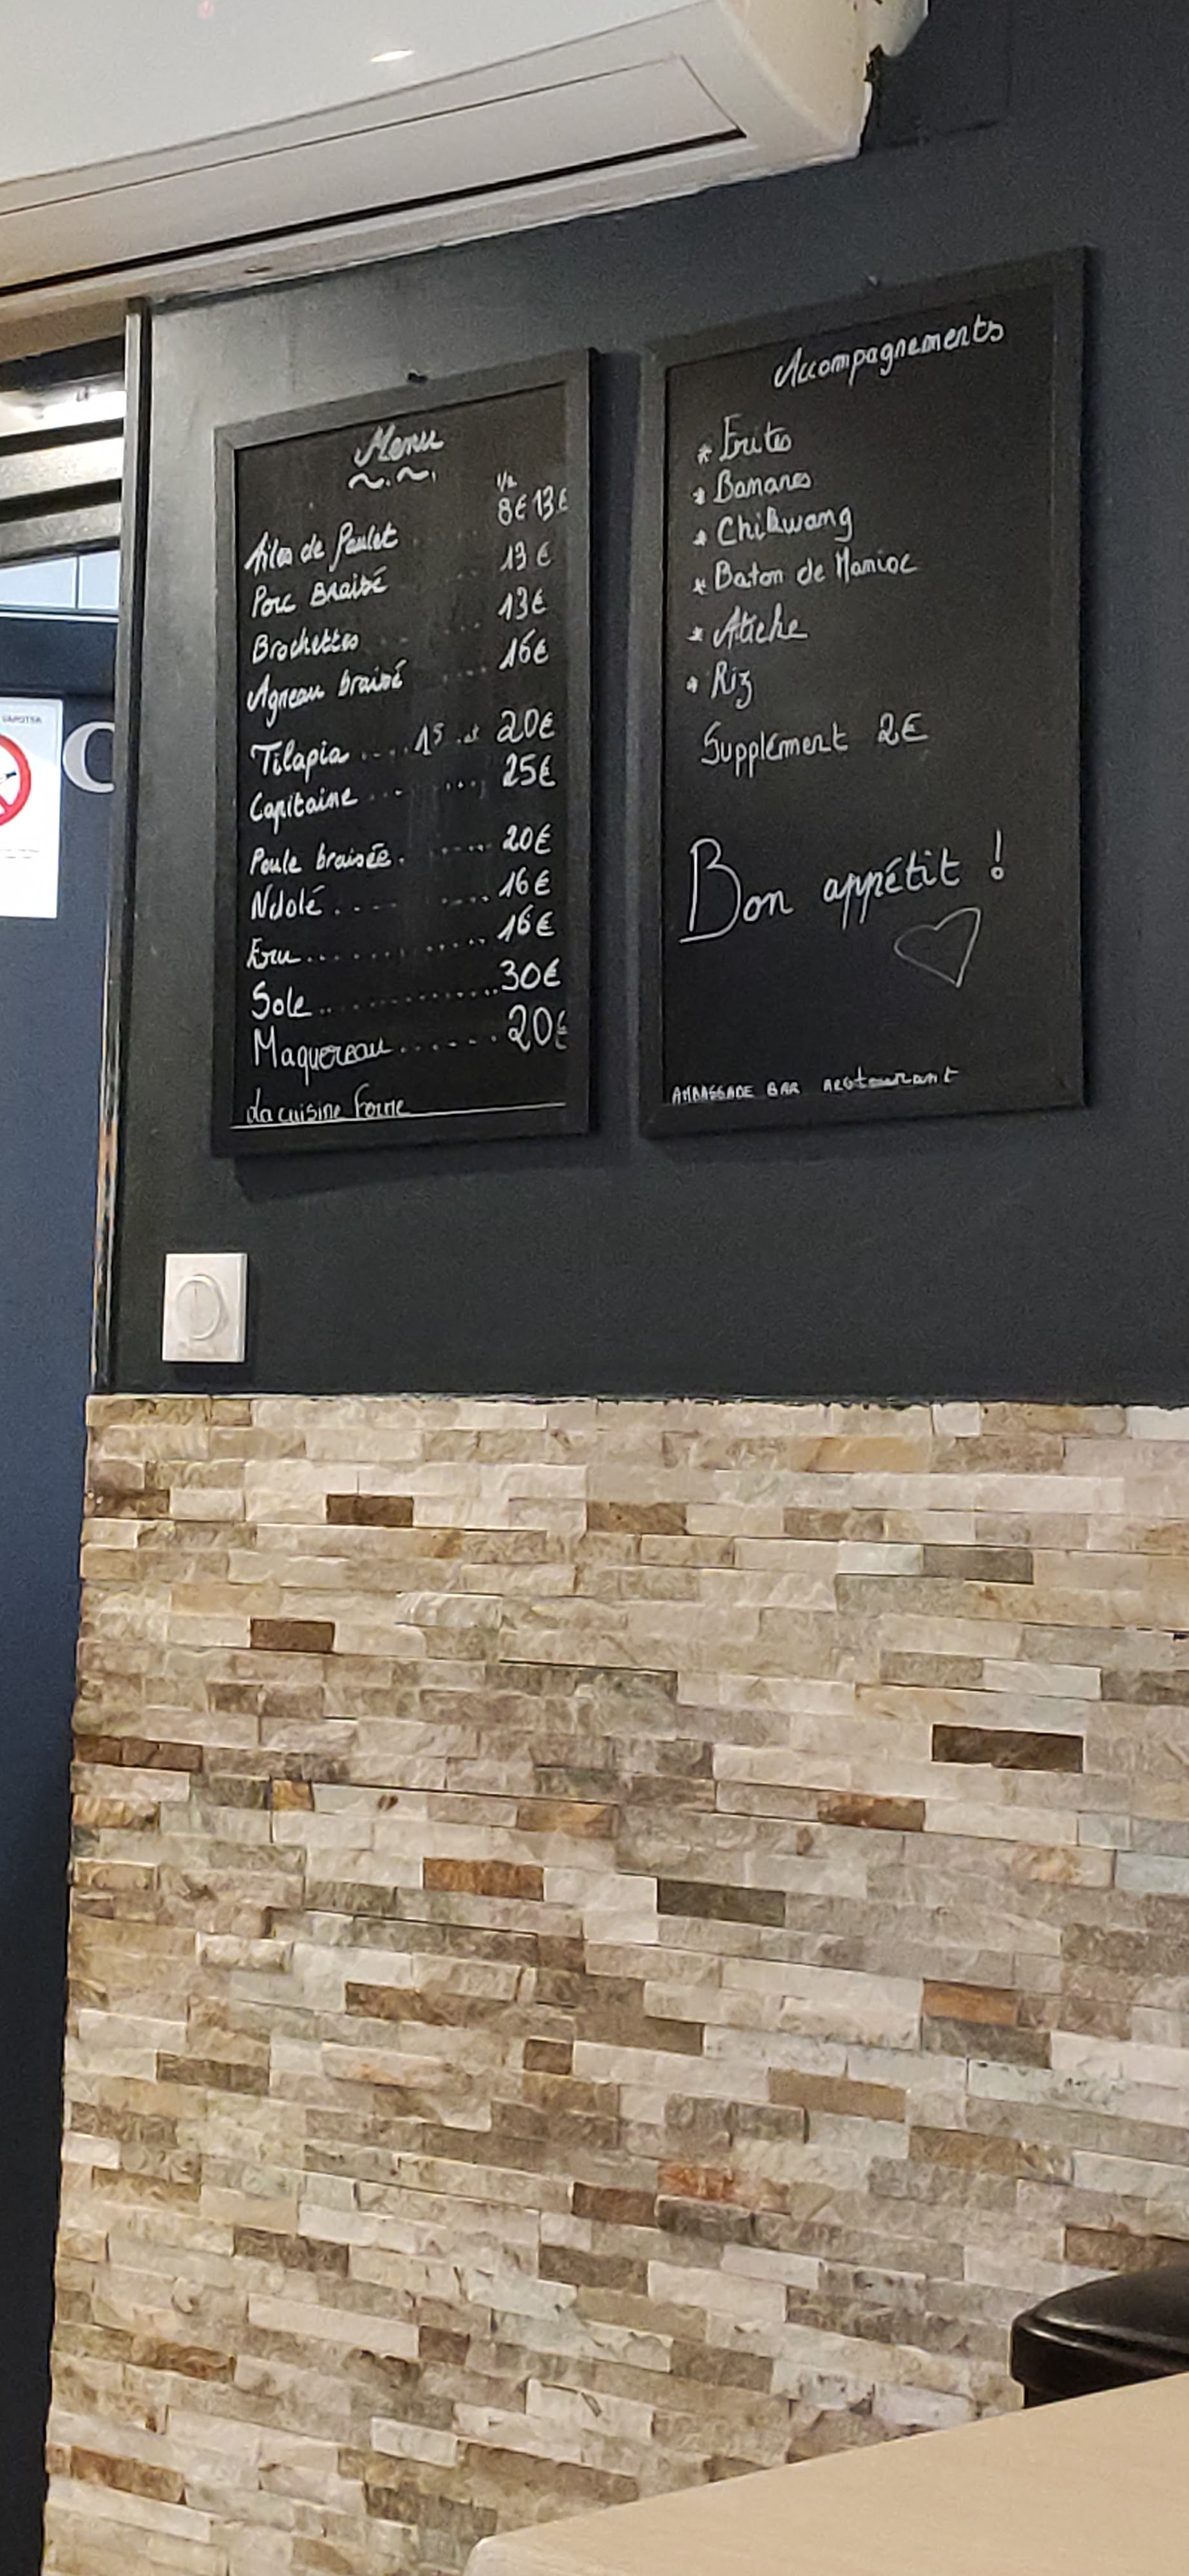 Menu
1/2
Ailes de Poulet ..... 8€ 13€
Porc Braisé ..... 13€
Brochettes ..... 13€
Agneau braisé ..... 16€
Tilapia .... 15 .et 20€
Capitaine ....... 25€
Poule braisée ....... 20€
Ndolé ........ 16€
Eru ............ 16€
Sole ............... 30€
Maquereau ....... 20€
La cuisine
Accompagnements
* Frites
* Bananes
* Chikwang
* Baton de Manioc
* Atieke
* Riz
Supplément 2€
Bon appétit !
AMBASSADE BAR restaurant